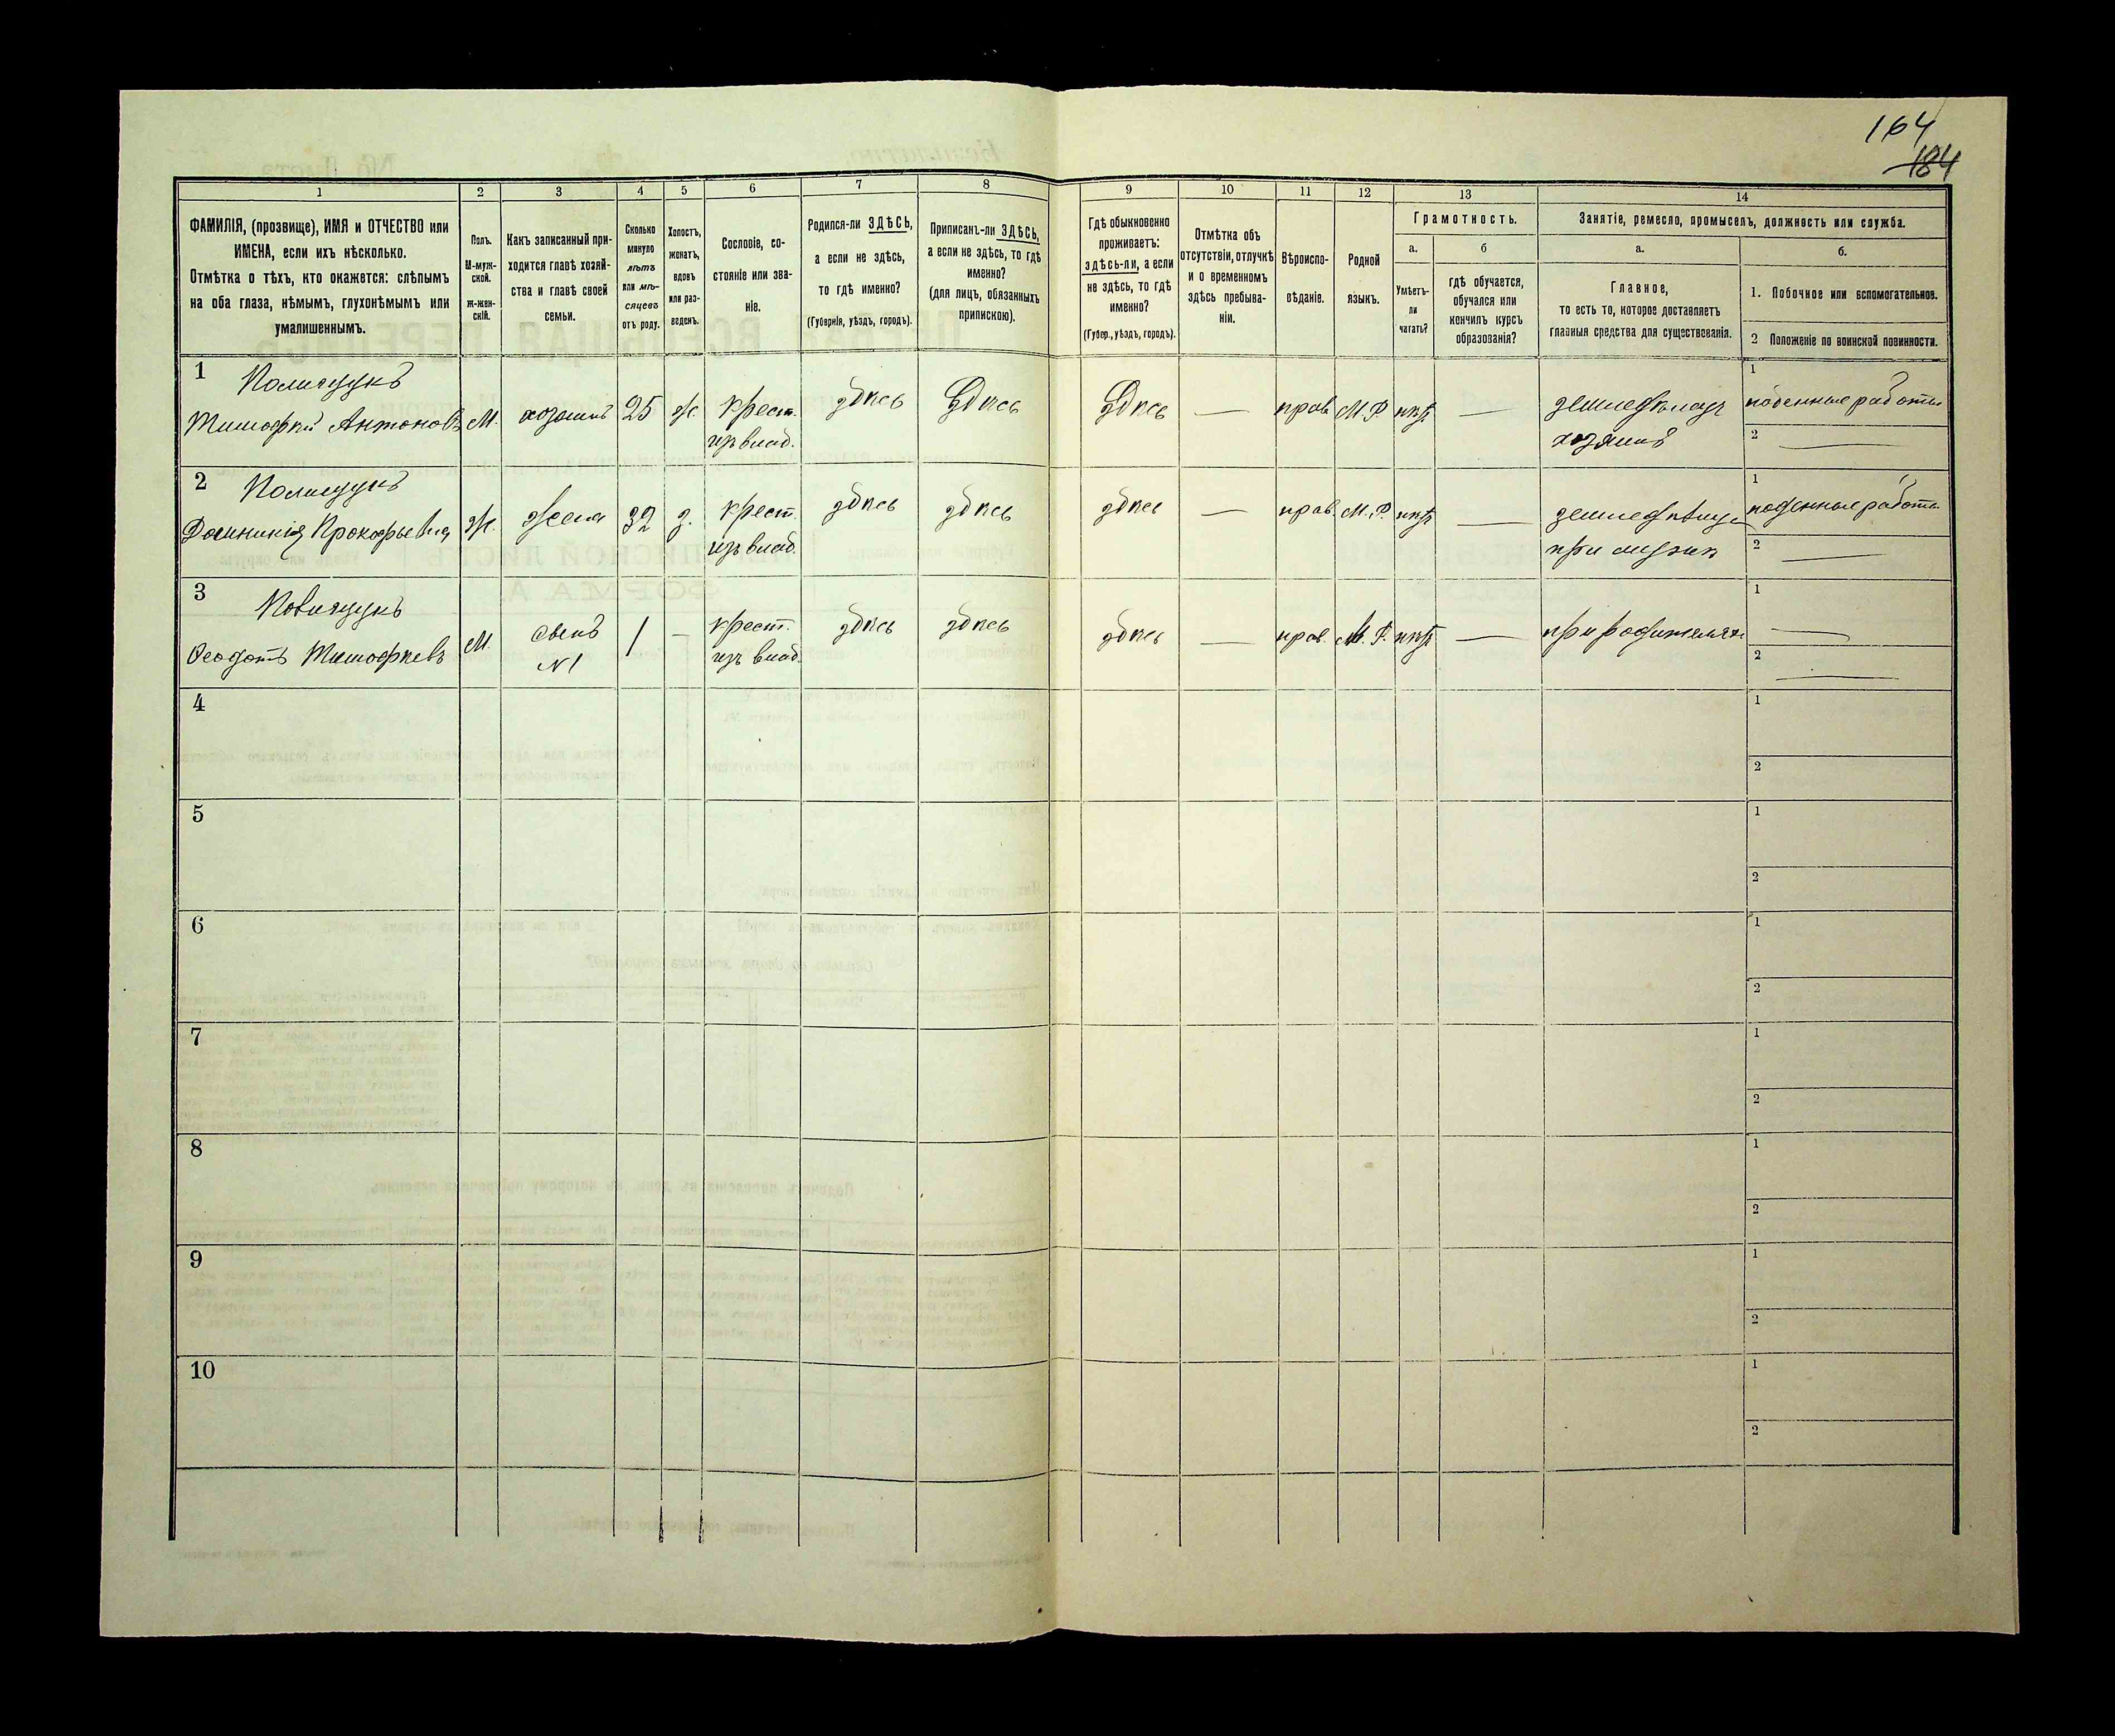 164
184
1
2
3
4
5
6
7
8
9
10
11
12
13
14
ФАМИЛІЯ, (прозвище), ИМЯ и ОТЧЕСТВО или
ИМЕНА, если ихъ нѣсколько.
Отмѣтка о тѣхъ, кто окажется: слѣпымъ
на оба глаза, нѣмымъ, глухонѣмымъ или
умалишеннымъ.
Полъ.
М-муж-
ской.
ж-жен-
скій.
Какъ записанный при-
ходится главѣ хозяй-
ства и главѣ своей
семьи.
Сколько
минуло
лѣтъ
или мѣ-
сяцевъ
отъ роду.
Холостъ,
женатъ,
вдовъ
или раз-
веденъ.
Сословіе, со-
стояніе или зва-
ніе.
Родился-ли ЗДѢСЬ,
а если не здѣсь,
то гдѣ именно?
(Губернія, уѣздъ, городъ).
Приписанъ-ли ЗДѢСЬ,
а если не здѣсь, то гдѣ
именно?
(для лицъ, обязанныхъ
припискою).
Гдѣ обыкновенно
проживаетъ:
здѣсь-ли, а если
не здѣсь, то гдѣ
именно?
(Губер., уѣздъ, городъ).
Отмѣтка объ
отсутствіи, отлучкѣ
и о временномъ
здѣсь пребыва-
ніи.
Вѣроиспо-
вѣданіе.
Родной
языкъ.
Грамотность.
а.
Умѣетъ-
ли
читать?
б
гдѣ обучается,
обучался или
кончилъ курсъ
образованія?
Занятіе, ремесло, промыселъ, должность или служба.
а.
Главное,
то есть то, которое доставляетъ
главныя средства для существованія.
б.
1. Побочное или вспомогательное.
2 Положеніе по воинской повинности.
1
Полищукъ
Тимофей Антоновъ
М.
хозяинъ
25
ж
крест.
изъ влад.
здѣсь
Здѣсь
Здѣсь
—
прав
М.Р.
нѣтъ
—
земледѣлецъ
хозяинъ
1
поденные работы
2
—
2
Полищукъ
Доминикія Прокофьевна
Ж.
жена
32
з.
крест.
изъ влад.
здѣсь
здѣсь
здѣсь
—
прав.
М.Р.
нѣтъ
—
при мужѣ
1
поденные работы
2
—
3
Полищукъ
Ѳеодотъ Тимофѣевъ
М.
сынъ
№1
1
—
крест.
изъ влад.
здѣсь
здѣсь
здѣсь
—
прав.
М.Р.
нѣтъ
—
при родителяхъ
1
—
2
—
4
1
2
5
1
2
6
1
2
7
1
2
8
1
2
9
1
2
10
1
2